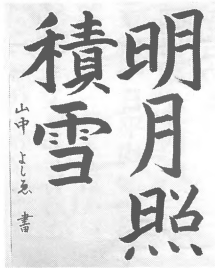 明月照
積雪
山中 よしゑ 書